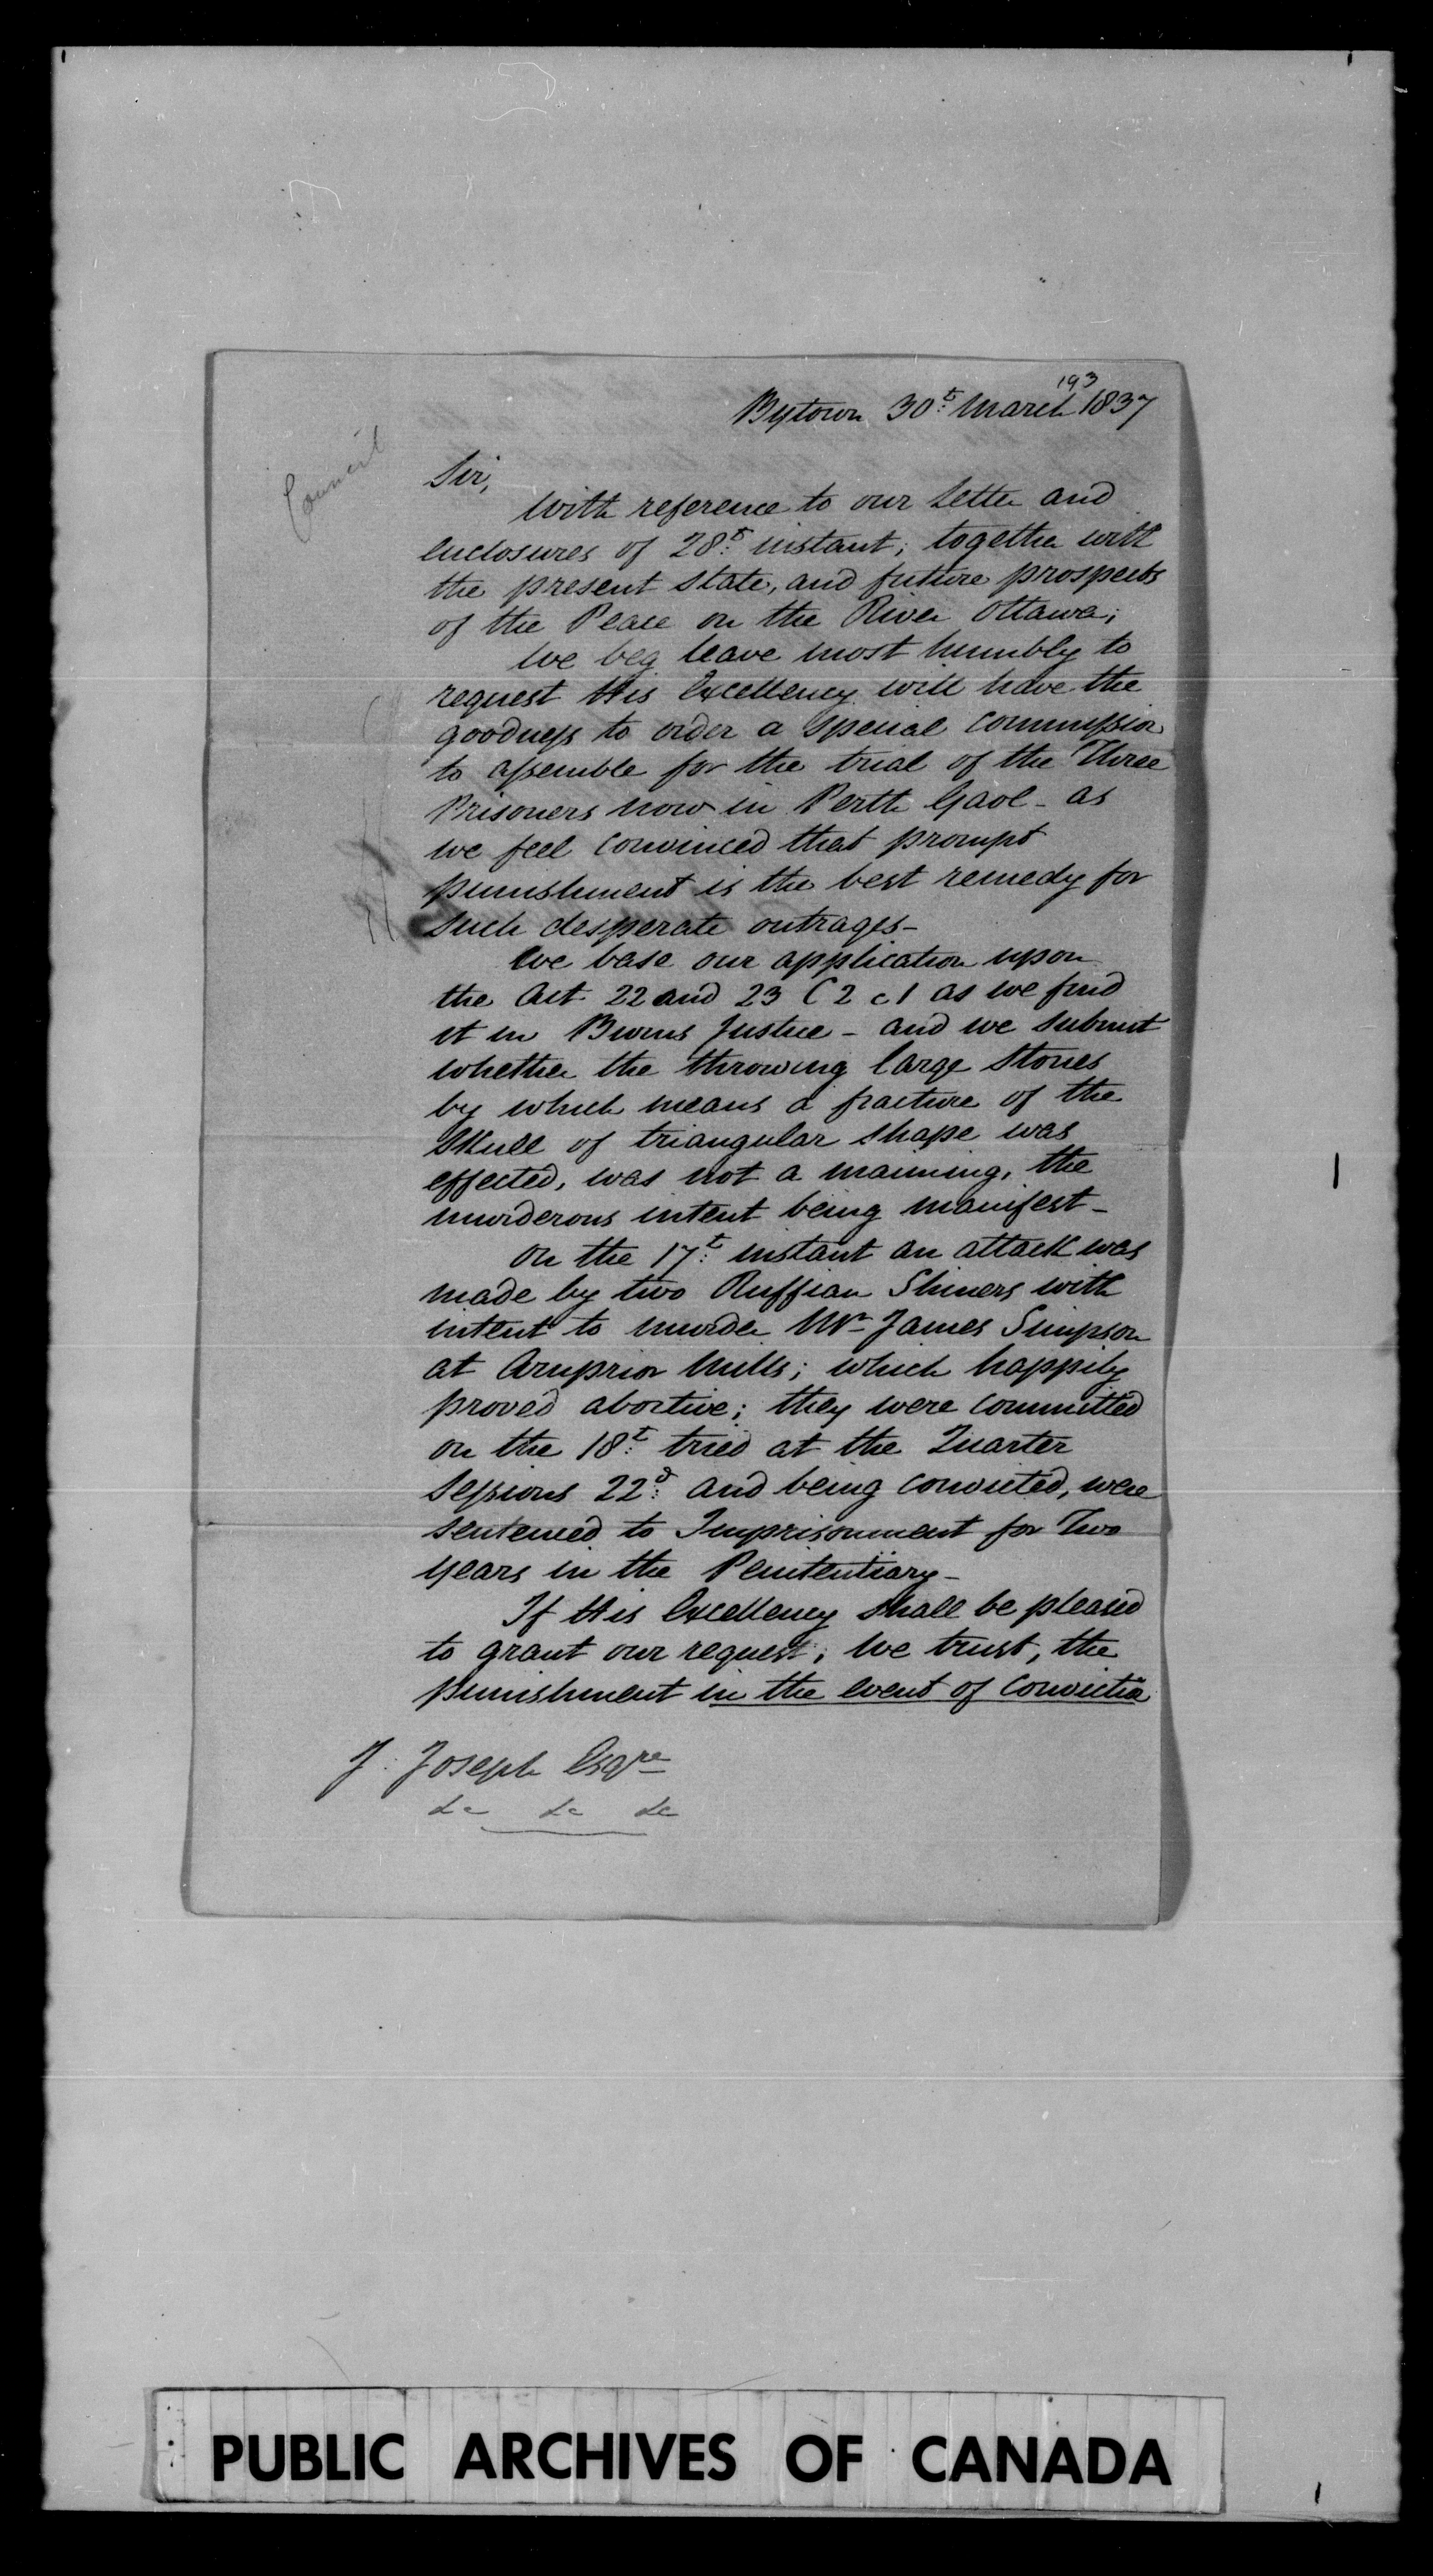 193
Bytown 30t: March 1837
Council
Sir,
With reference to our letter and
enclosures of 28t: instant; together with
the present state, and future prospects
of the Peace on the River Ottawa;
We beg leave most humbly to
request His Excellency will have the
goodness to order a special commission
to assemble for the trial of the Three
Prisoners now in Perth Gaol - as
we feel convinced that prompt
punishment is the best remedy for
such desperate outrages -
We base our application upon
the Act 22 and 23 C 2 c 1 as we find
it in Burns Justice - and we submit
whether the throwing large stones
by which means a fracture of the
Skull of triangular shape was
effected, was not a maiming, the
murderous intent being manifest -
On the 17t: instant an attack was
made by two Ruffian Shiners with
intent to murder Mr James Simpson
at Arnprior Mills; which happily
proved abortive; they were committed
on the 18t: tried at the Quarter
Sessions 22d: and being convicted, were
sentenced to Imprisonment for Two
years in the Penitentiary -
If His Excellency shall be pleased
to grant our request; We trust, the
punishment in the event of Convictio
J. Joseph Esqre
&c &c &c
PUBLIC ARCHIVES OF CANADA